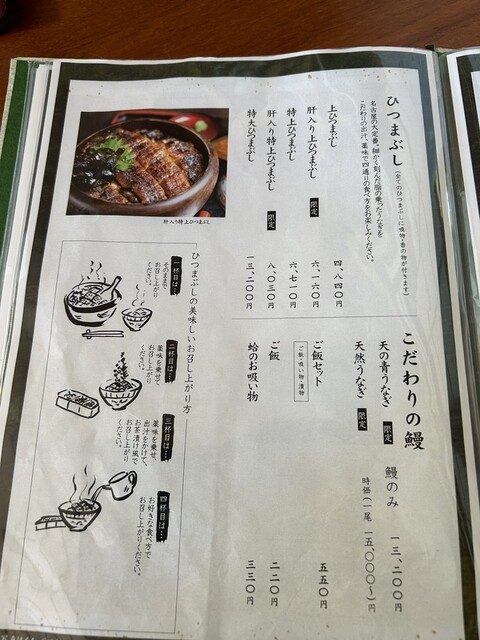 ひつまぶし（全てのひつまぶしに吸物・香の物が付きます）
名古屋の大定番。細かく刻んだ脂の乗ったうなぎを
こだわりの出汁、薬味で四通りの食べ方をお楽しみください。
上ひつまぶし 四、八四〇
肝入り上ひつまぶし 限定 六、一六〇
特上ひつまぶし 六、七一〇
肝入り特上ひつまぶし 限定 八、〇三〇
特大ひつまぶし 一三、二〇〇円
肝入り特上ひつまぶし
こだわりの鰻
鰻のみ
天の青うなぎ 限定 一三、二〇〇円
天然うなぎ 限定 時価（一尾 一五、〇〇〇〜）円
ご飯セット 五五〇円
ご飯・吸い物・漬物
ご飯 二二〇
蛤のお吸い物 三三〇
ひつまぶしの美味しいお召し上がり方
一杯目は…
そのままで
お召し上がり
ください。
二杯目は…
薬味を乗せて
お召し上がり
ください。
三杯目は…
薬味を乗せ、
出汁をかけて、
お茶漬け風で
お召し上がり
ください。
四杯目は…
お好きな食べ方で
お召し上がりください。